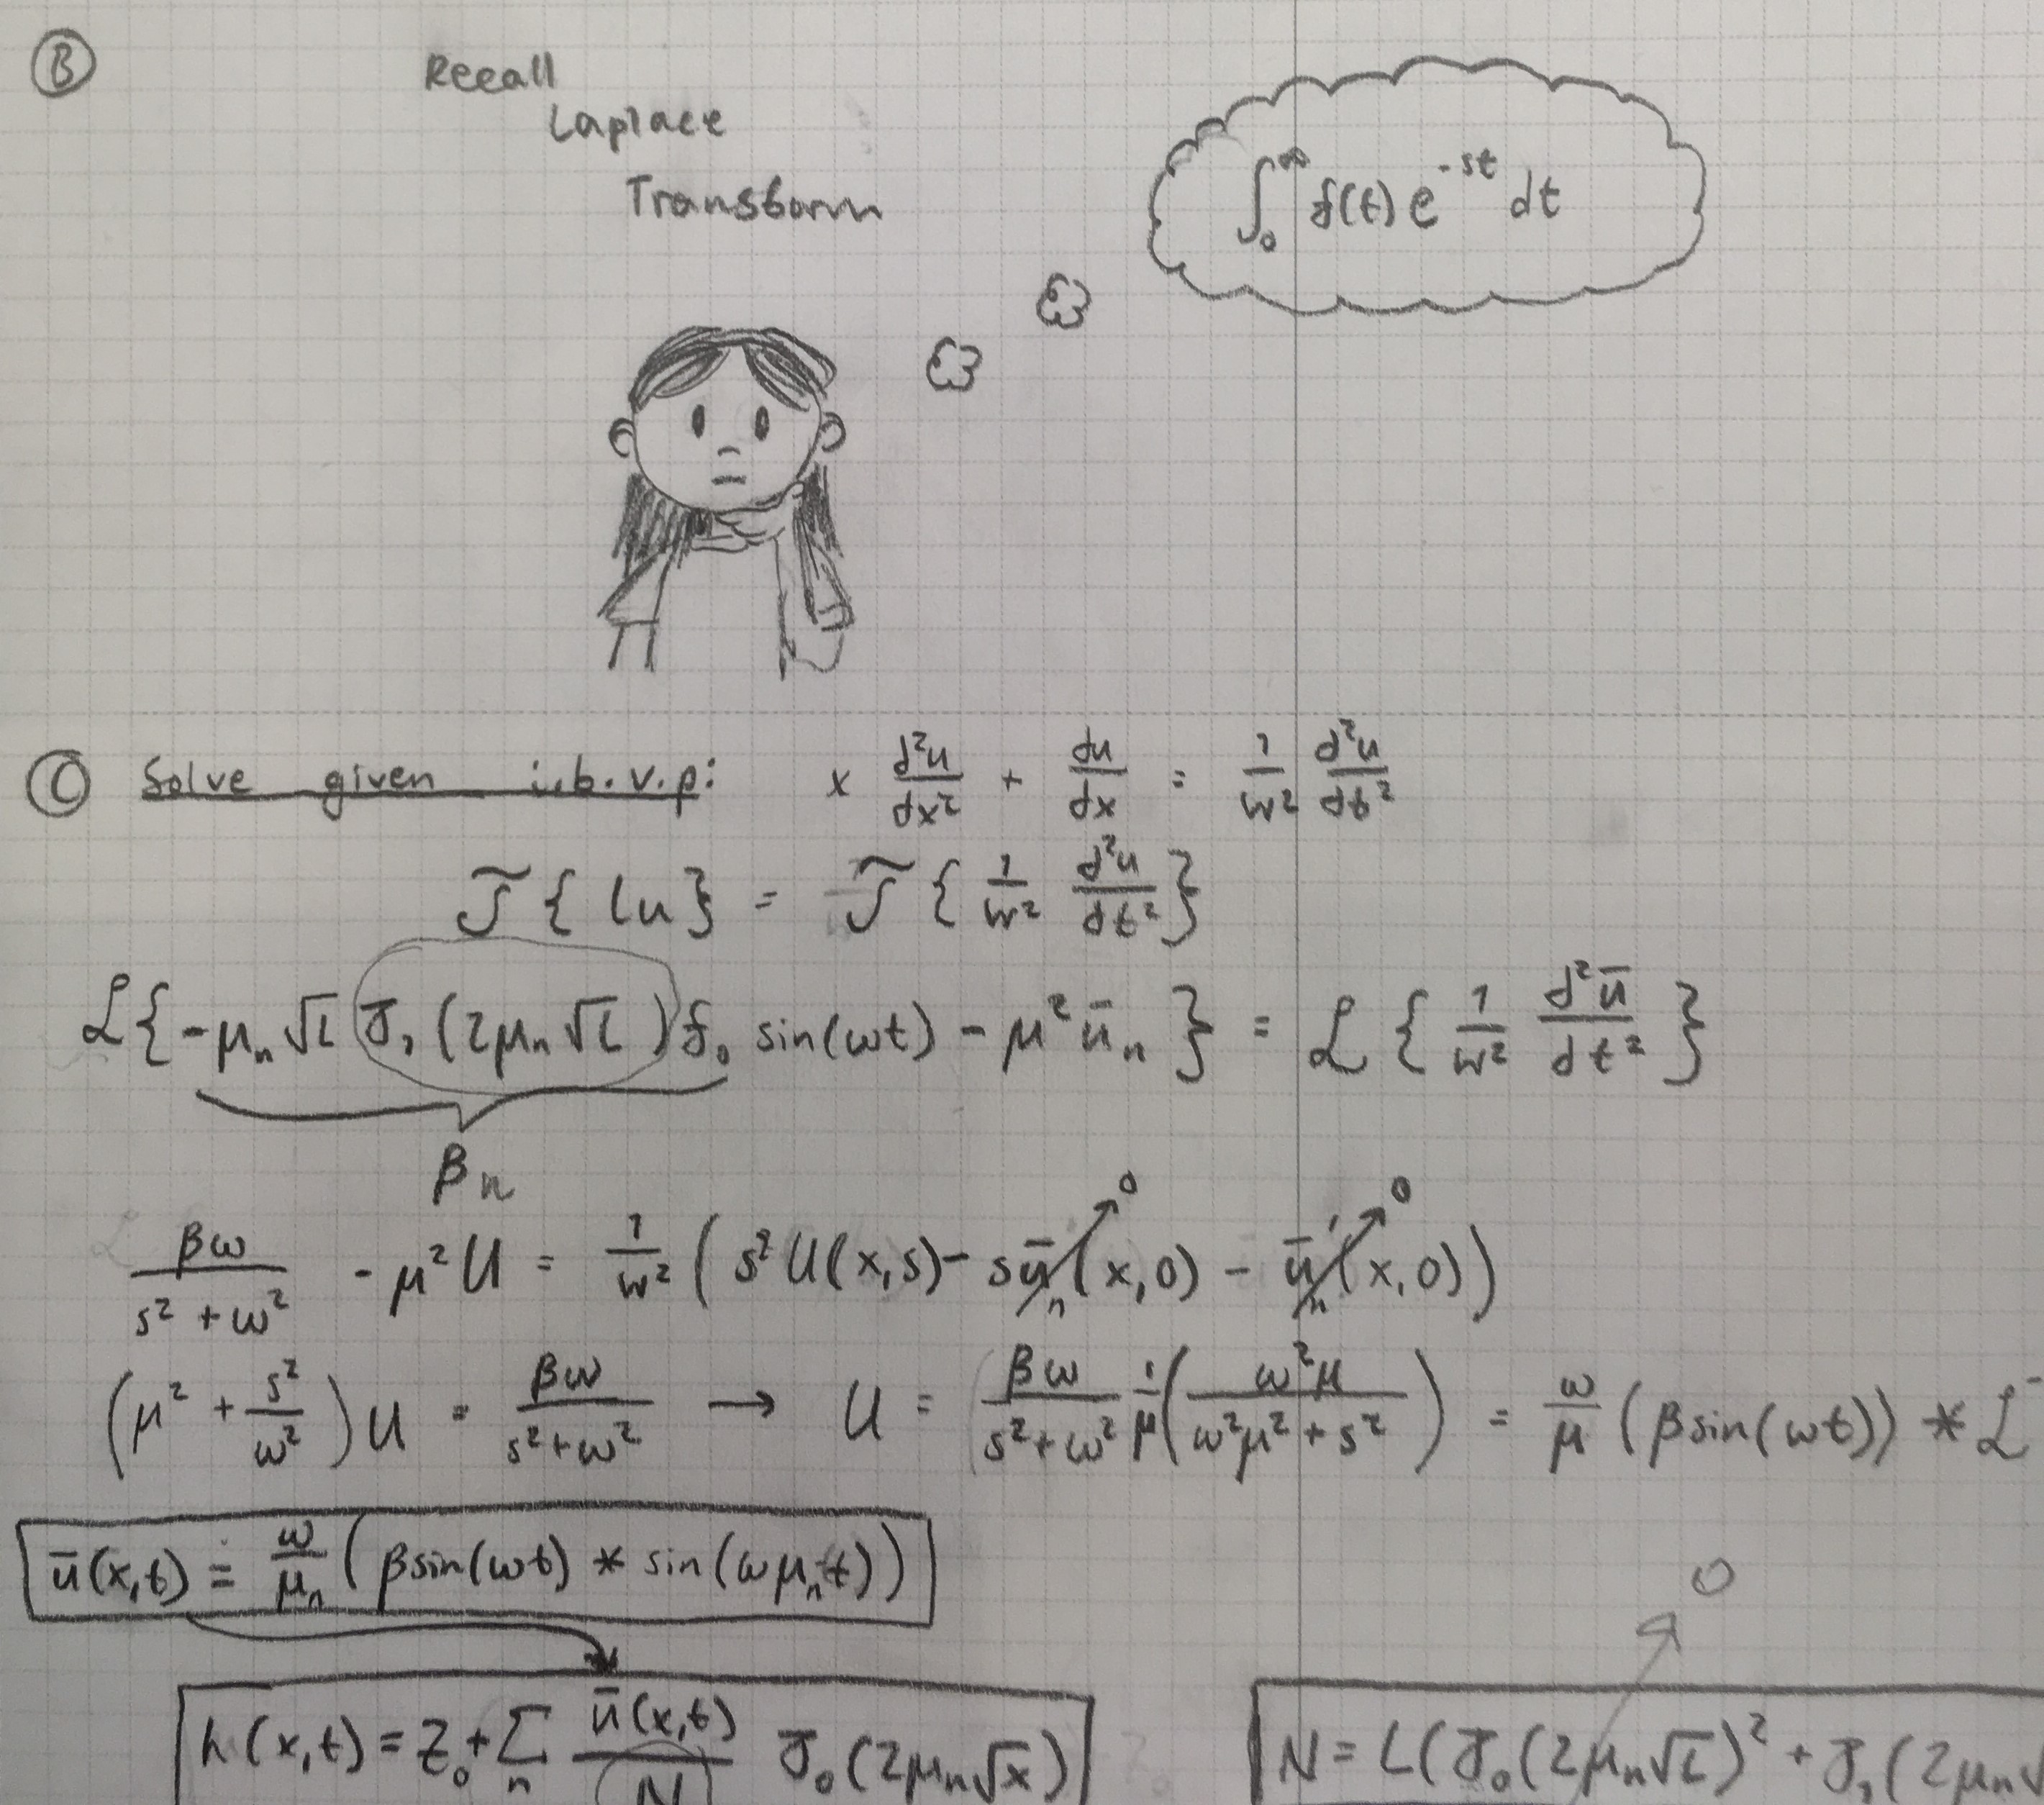 B
Recall
Laplace
Transform
∫₀^∞ f(t) e^{-st} dt
C Solve given i.b.v.p: x d²u/dx² + du/dx = 1/w² d²u/dt²
J̃ { Lu } = J̃ { 1/w² d²u/dt² }
ℒ{ -μₙ √L J₁ (2μₙ √L) f₀ sin(ωt) - μ² ūₙ } = ℒ { 1/w² d²ū/dt² }
βₙ
βω/(s² + ω²) - μ² U = 1/w² ( s² U(x,s) - s ūₙ(x,0) - ūₙ'(x,0) )
0 0
(μ² + s²/ω²) U = βω/(s²+ω²) → U = βω/(s²+ω²) 1/μ ( ω²μ/(ω²μ² + s²) ) = ω/μ (β sin(ωt)) * ℒ⁻
ū(x,t) = ω/μₙ ( β sin(ωt) * sin(ωμₙt) )
0
h(x,t) = Z₀ + Σₙ ū(x,t)/N J₀(2μₙ√x)
N = L(J₀(2μₙ√L)² + J₁(2μₙ√